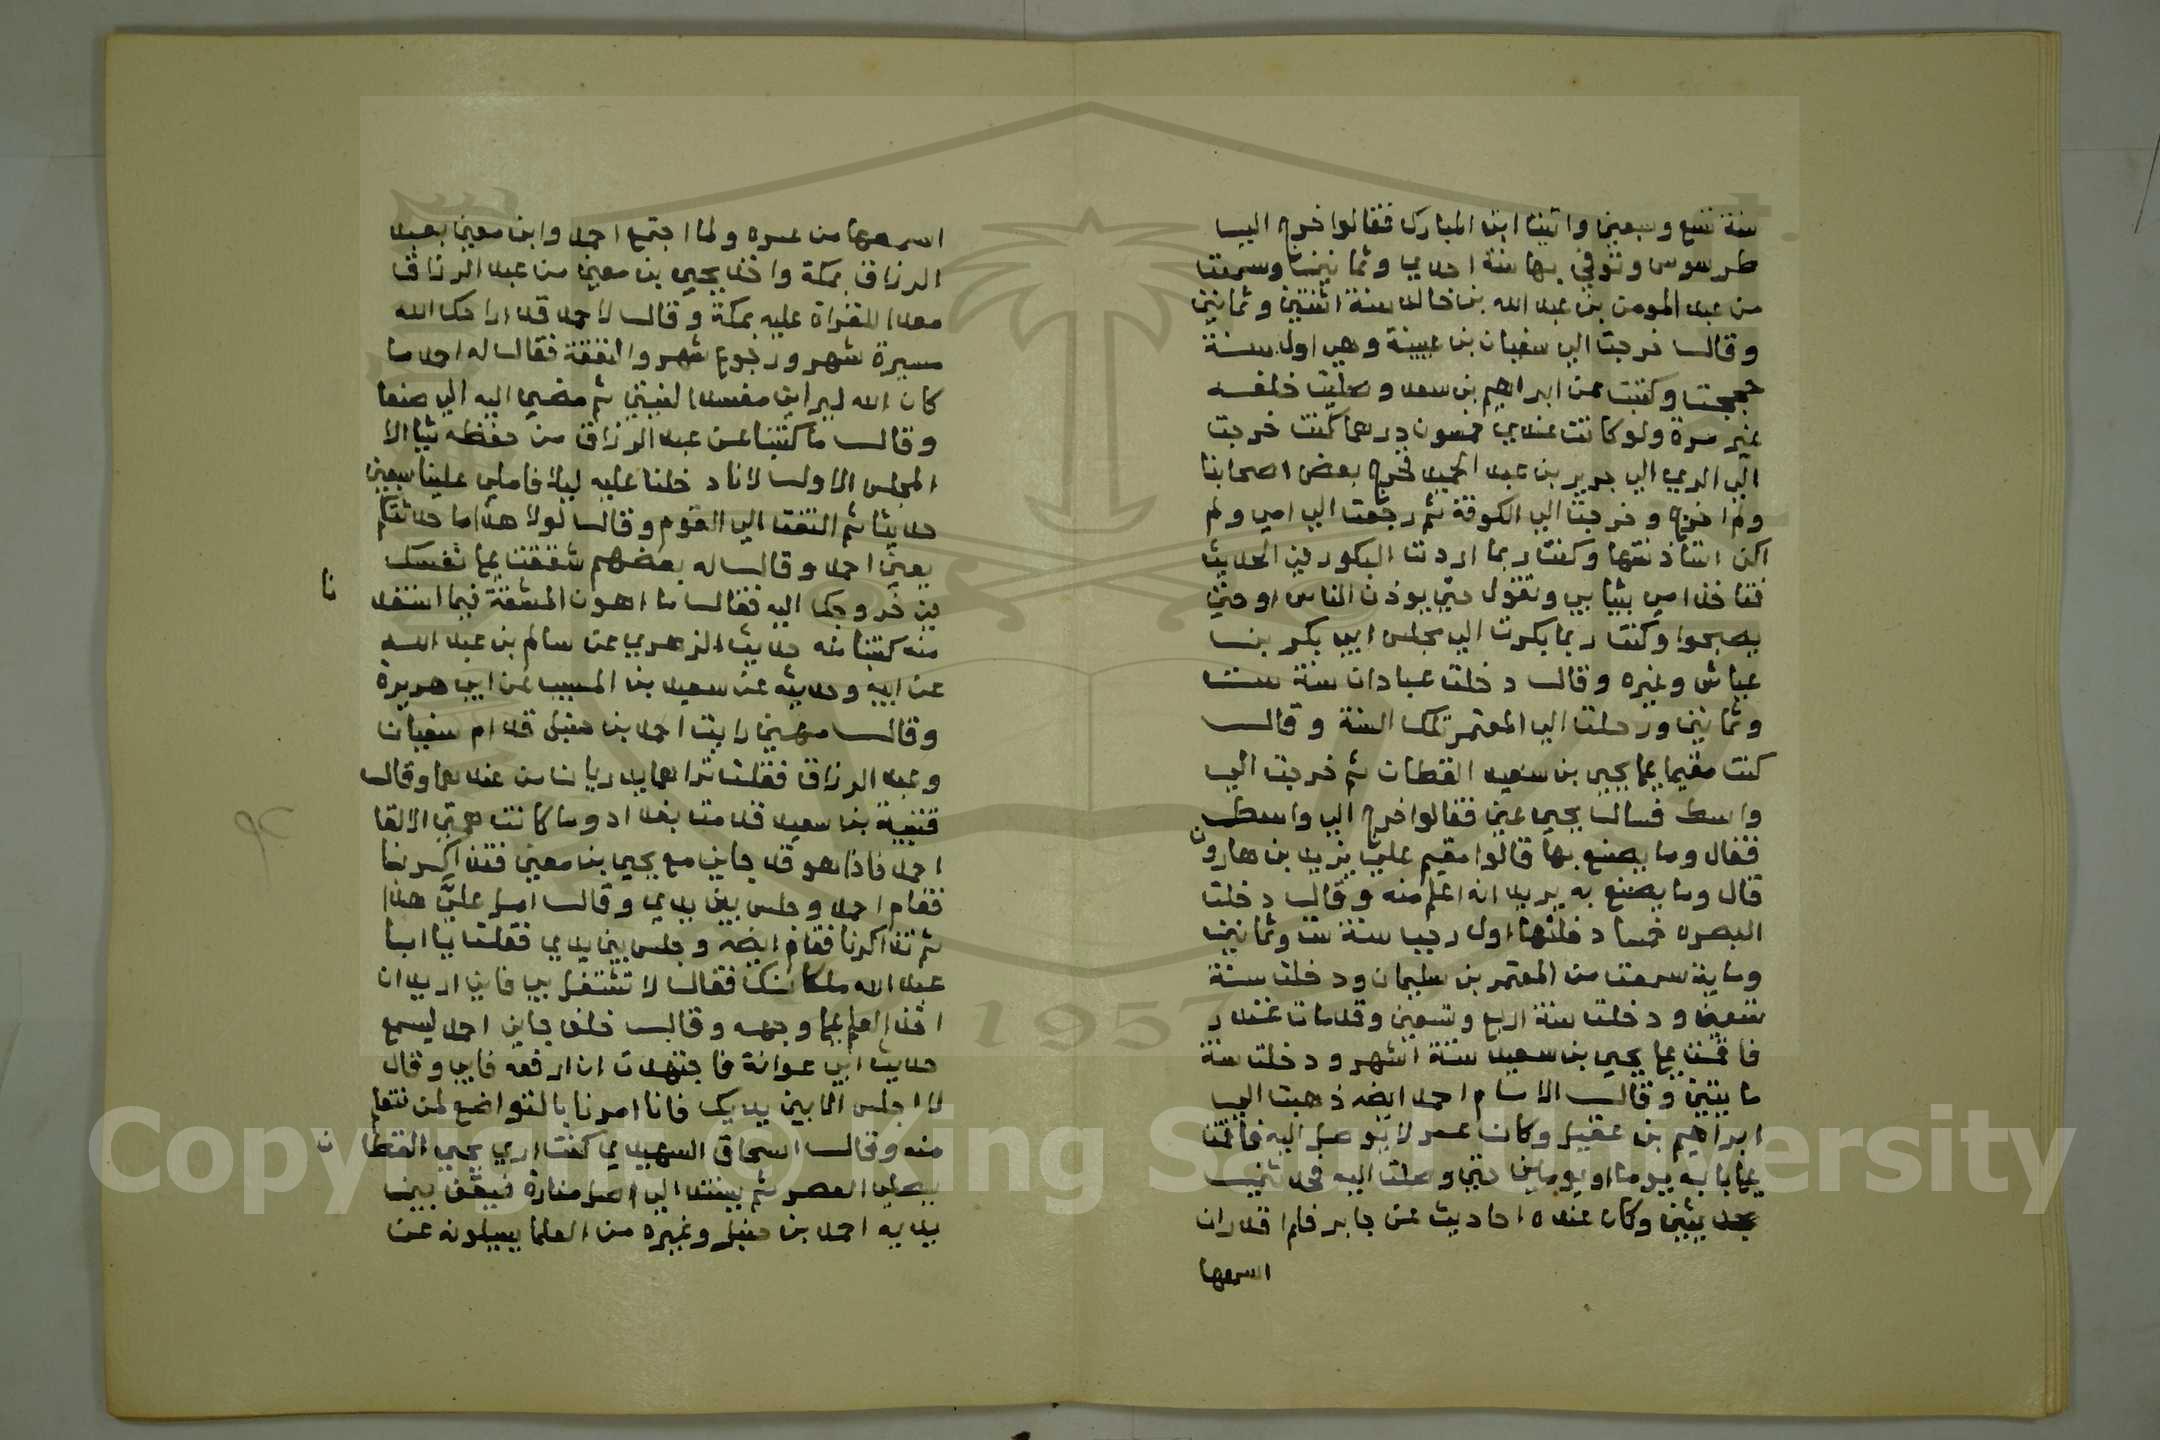 سنة تسع وسبعين واتينا ابن المبارك فقالوا خرج الي
طرسوس وتوفي بها سنة احدي وثمانين وسمعت
من عبد المومن بن عبد الله بن خالد سنة اثنتين وثمانين
وقال خرجت الي سفيان بن عيينة وهي اول سنة
حججت وكتبت عن ابراهيم بن سعد وصليت خلفه
غير مرة ولو كانت عندي خمسون درهما كنت خرجت
الي الري الي جرير بن عبد الحميد فخرج بعض اصحابنا
ولم اخرج وخرجت الي الكوفة ثم رجعت الي امي ولم
اكن استاذنتها وكنت ربما اردت البكور في الحديث
فتاخذ امي بثيابي وتقول حتي يوذن الناس او حتي
يصبحوا وكنت ربما بكرت الي مجلس ابي بكر بن
عياش وغيره وقال دخلت عبادان سنة ست
وثمانين ورحلت الي المعتمر تلك السنة وقال
كنت مقيما علي يحيي بن سعيد القطان ثم خرجت الي
واسط فسال يحيي عني فقالوا خرج الي واسط
فقال وما يصنع بها قالوا مقيم علي يزيد بن هارون
قال وما يصنع به يريد انه اعلم منه وقال دخلت
البصره خمسا دخلتها اول رجب سنة ست وثمانين
وماية سمعت من المعتمر بن سليمان ودخلت سنة
تسعين ودخلت سنة اربع وتسعين وقد مات غندر
فاقمت علي يحيي بن سعيد ستة اشهر ودخلت سنة
مايتين وقال الامام احمد ايضه ذهبت الي
ابراهيم بن عقيل وكان عسر لا يوصل اليه فاقمت
علي بابه يوما او يومين حتي وصلت اليه فحدثني
بحديثين وكان عنده احاديث عن جابر فلم اقدر ان
اسمعها
اسمعها من عسره ولما اجتمع احمد وابن معين بعبد
الرزاق بمكة واخذ يحيي بن معين من عبد الرزاق
معدا للقراة عليه بمكة وقال لاحمد قد اراحك الله
مسيرة شهر ورجوع شهر والنفقة فقال له احمد ما
كان الله ليراني مفسدا لنيتي ثم مضي اليه الي صنعا
وقال ما كتبنا عن عبد الرزاق من حفظه شيا الا
المجلس الاول لانا دخلنا عليه ليلا فاملي علينا سبعين
حديثا ثم التفت الي القوم وقال لولا هذا ما حدثتكم
يعني احمد وقال له بعضهم شققت علي نفسك
في خروجك اليه فقال ما اهون المشقة فيما استفد
نا
منه كتبنا منه حديث الزهري عن سالم بن عبد الله
عن ابيه وحديثه عن سعيد بن المسيب عن ابي هريرة
وقال مهني رايت احمد بن حنبل قدام سفيان
وعبد الرزاق فقلت تراهما يدريان من عندهما وقال
قتيبة بن سعيد قدمت بغداد وما كانت همتي الا لقا
احمد فاذا هو قد جاني مع يحيي بن معين فتذاكرنا
فقام احمد وجلس بين يدي وقال امل عليَّ هذا
ثم تذاكرنا فقام ايضه وجلس بين يدي فقلت يا ابا
عبد الله مكانك فقال لا تشتغل بي فاني اريد ان
اخذ العلم علي وجهه وقال خلف جاني احمد ليسمع
حديث ابي عوانة فاجتهدت ان ارفعه فابي وقال
لا اجلس الا بين يديك فانا امرنا بالتواضع لمن نتعلم
منه وقال اسحاق الشهيدي كنت اري يحيي القطان
يصلي العصر ثم يستند الي اصل منارة فيقف بين
يديه احمد بن حنبل وغيره من العلما يسيلونه عن
Copyright © King Saud University
1957